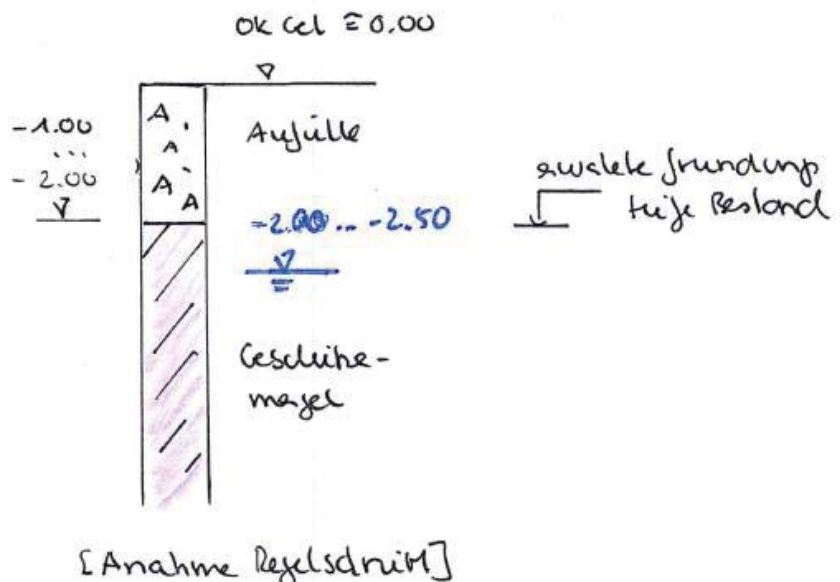 OK Gel ≅ 0.00
-1.00
...
- 2.00
A
A
A
A
Auffülle
-2.00 ... -2.50
Gründungs
tiefe Bestand
Geschiebe-
mergel
[Anahme Regelschnitt]